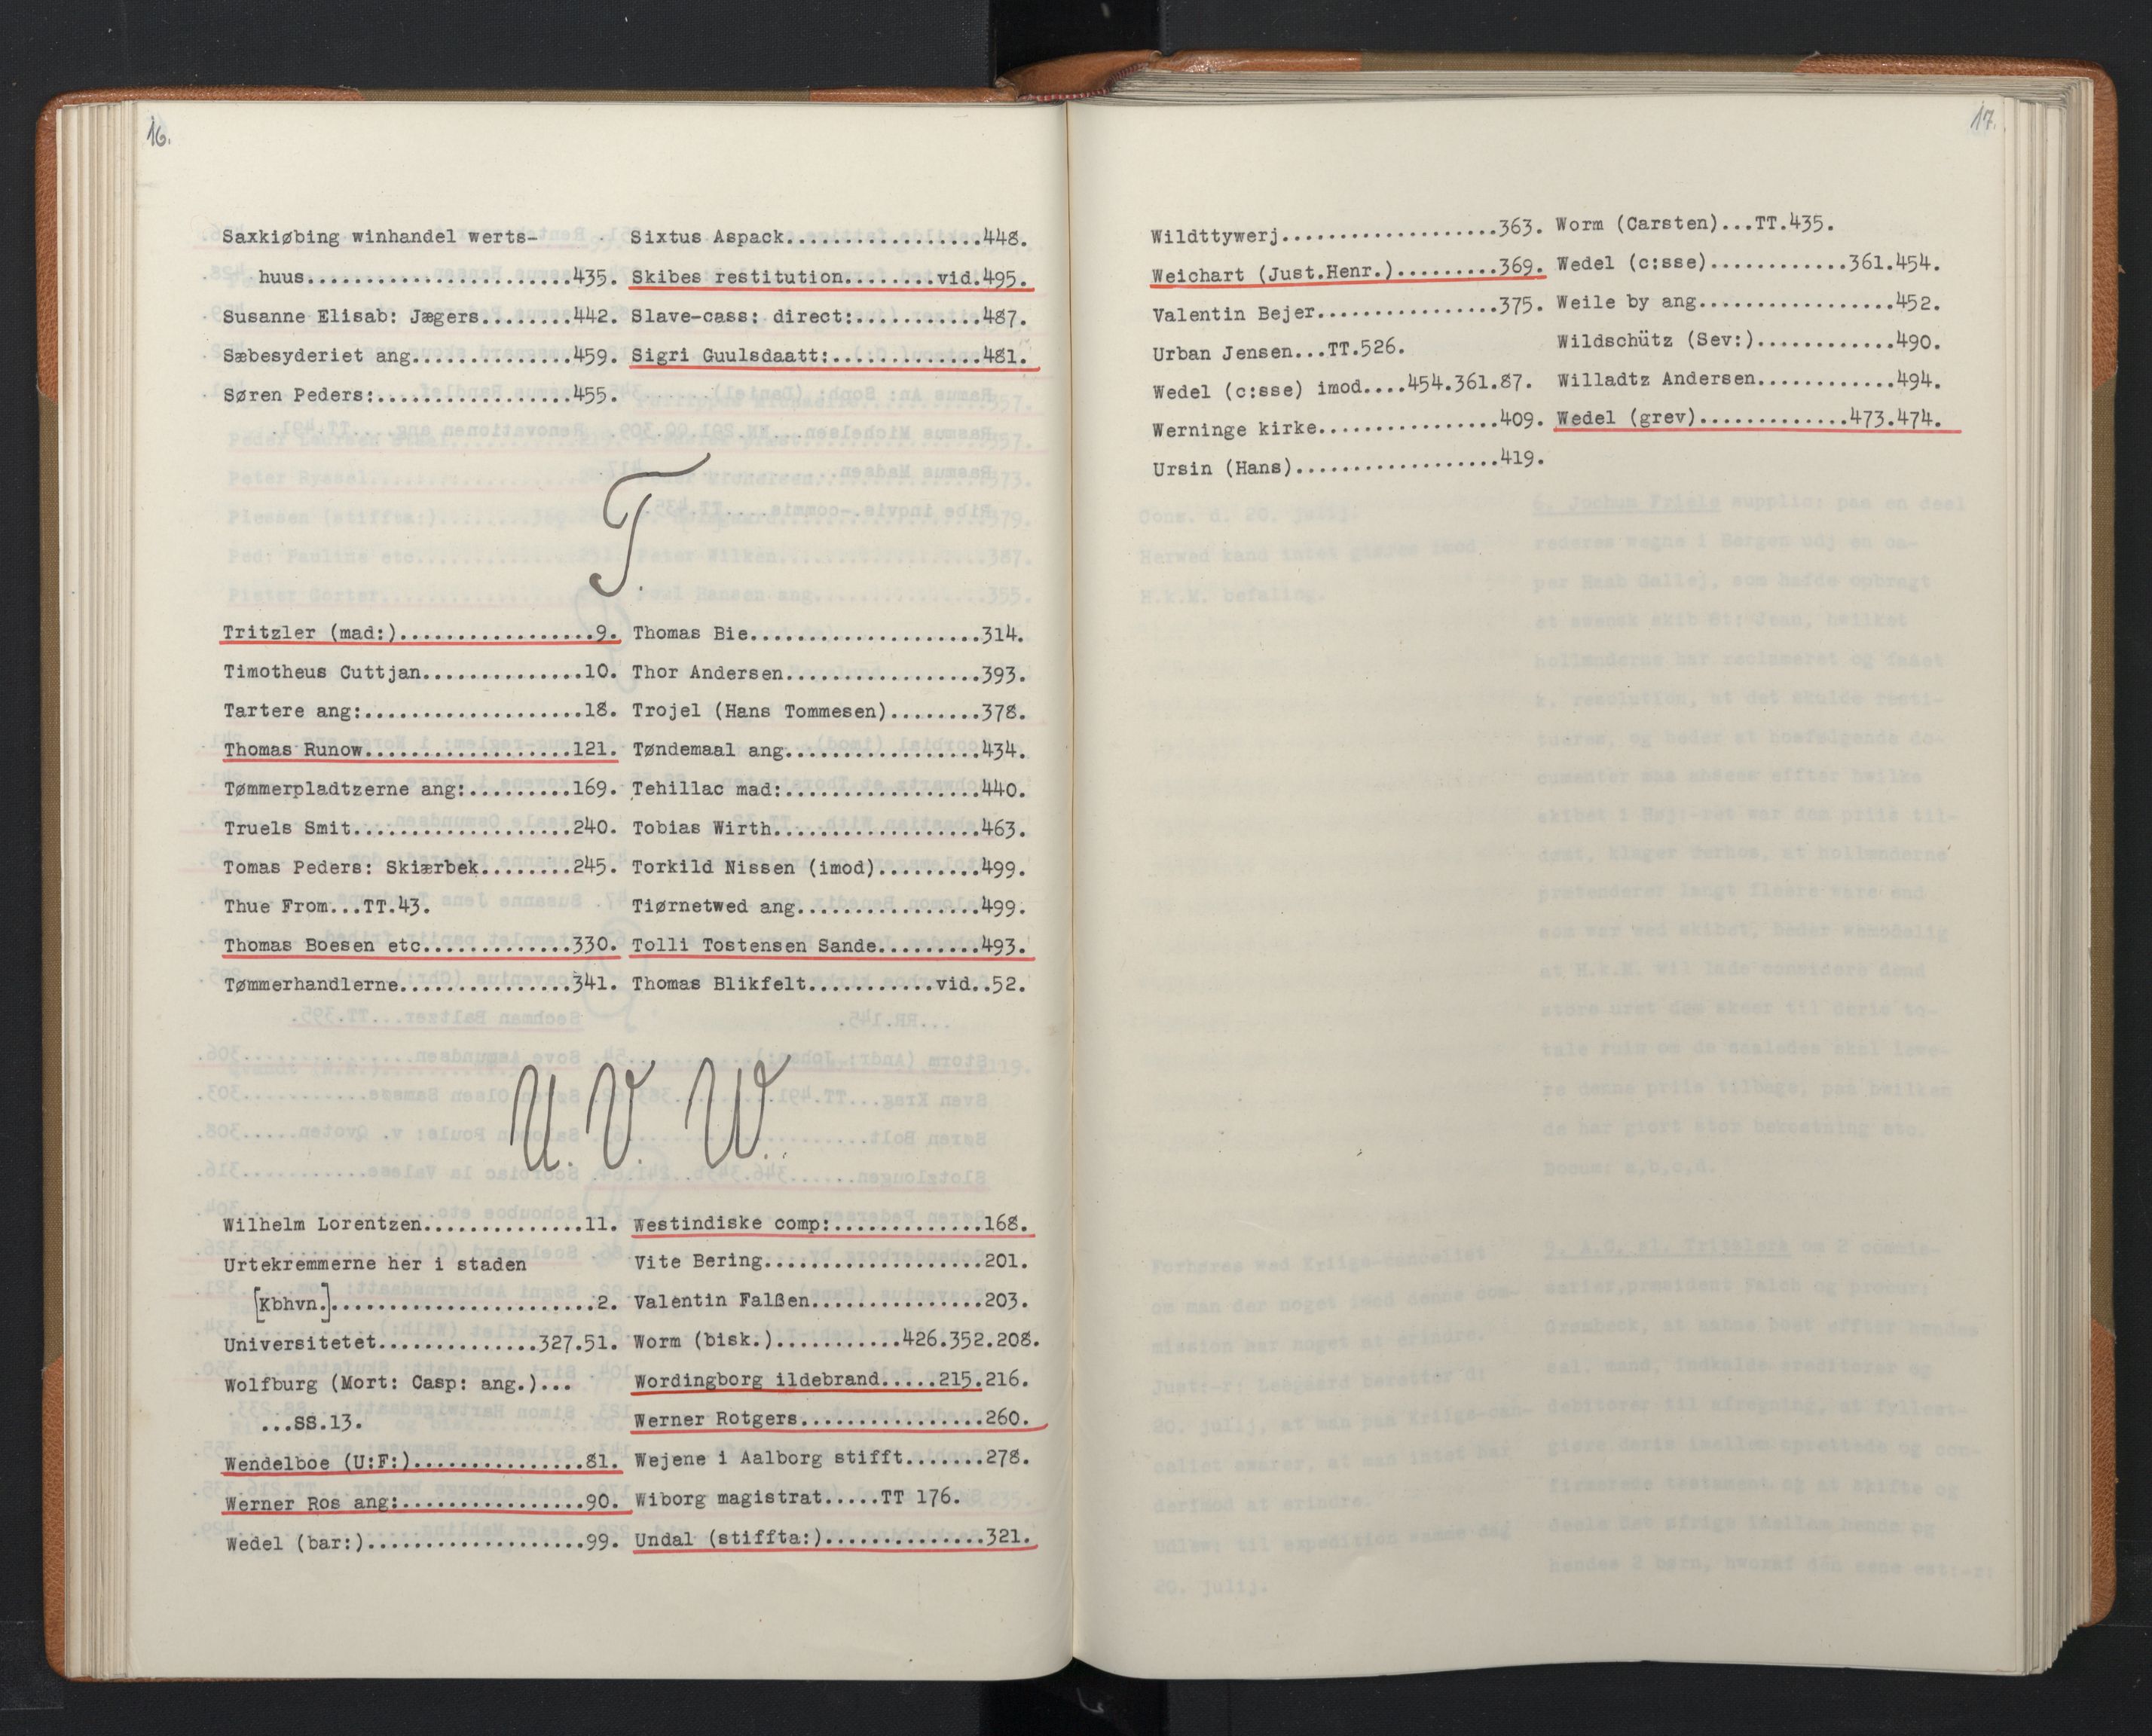 16.
Saxkiøbing winhandel werts-
huus.......................435.
Susanne Elisab: Jægers........442.
Sæbesyderiet ang..............459.
Søren Peders:.................455.
Sixtus Aspack.................448.
Skibes restitution........vid.495.
Slave-cass: direct:...........487.
Sigri Guulsdaatt:.............481.
T.
Tritzler (mad:).................9.
Timotheus Cuttjan..............10.
Tartere ang:...................18.
Thomas Runow..................121.
Tømmerpladtzerne ang:.........169.
Truels Smit...................240.
Tomas Peders: Skiærbek........245.
Thue From...TT.43.
Thomas Boesen etc.............330.
Tømmerhandlerne...............341.
Thomas Bie....................314.
Thor Andersen.................393.
Trojel (Hans Tommesen)........378.
Tøndemaal ang.................434.
Tehillac mad:.................440.
Tobias Wirth..................463.
Torkild Nissen (imod).........499.
Tiørnetwed ang................499.
Tolli Tostensen Sande.........493.
Thomas Blikfelt...........vid..52.
U. V. W.
Wilhelm Lorentzen..............11.
Urtekremmerne her i staden
[Kbhvn.].......................2.
Universitetet..............327.51.
Wolfburg (Mort: Casp: ang.)...
...SS.13.
Wendelboe (U:F:)...............81.
Werner Ros ang:................90.
Wedel (bar:)...................99.
Westindiske comp:.............168.
Vite Bering...................201.
Valentin Falßen...............203.
Worm (bisk.)...........426.352.208.
Wordingborg ildebrand.....215.216.
Werner Rotgers................260.
Wejene i Aalborg stifft.......278.
Wiborg magistrat.....TT 176.
Undal (stiffta:)..............321.
17.
Wildttywerj...................363.
Weichart (Just.Henr.).........369.
Valentin Bejer................375.
Urban Jensen...TT.526.
Wedel (c:sse) imod....454.361.87.
Werninge kirke................409.
Ursin (Hans)..................419.
Worm (Carsten)...TT.435.
Wedel (c:sse)............361.454.
Weile by ang.................452.
Wildschütz (Sev:)............490.
Willadtz Andersen............494.
Wedel (grev).............473.474.